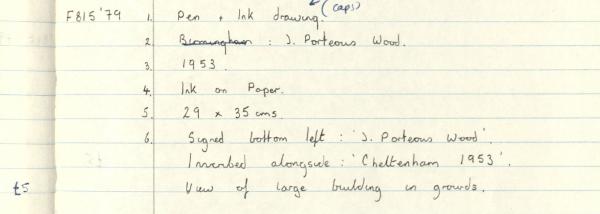 (caps)
F815'79 1. Pen + Ink drawing.
2. Birmingham : J. Porteous Wood.
3. 1953.
4. Ink on Paper.
5. 29 x 35 cms.
6. Signed bottom left : 'J. Porteous Wood'.
Inscribed alongside : 'Cheltenham 1953'.
£5 View of large building in grounds.